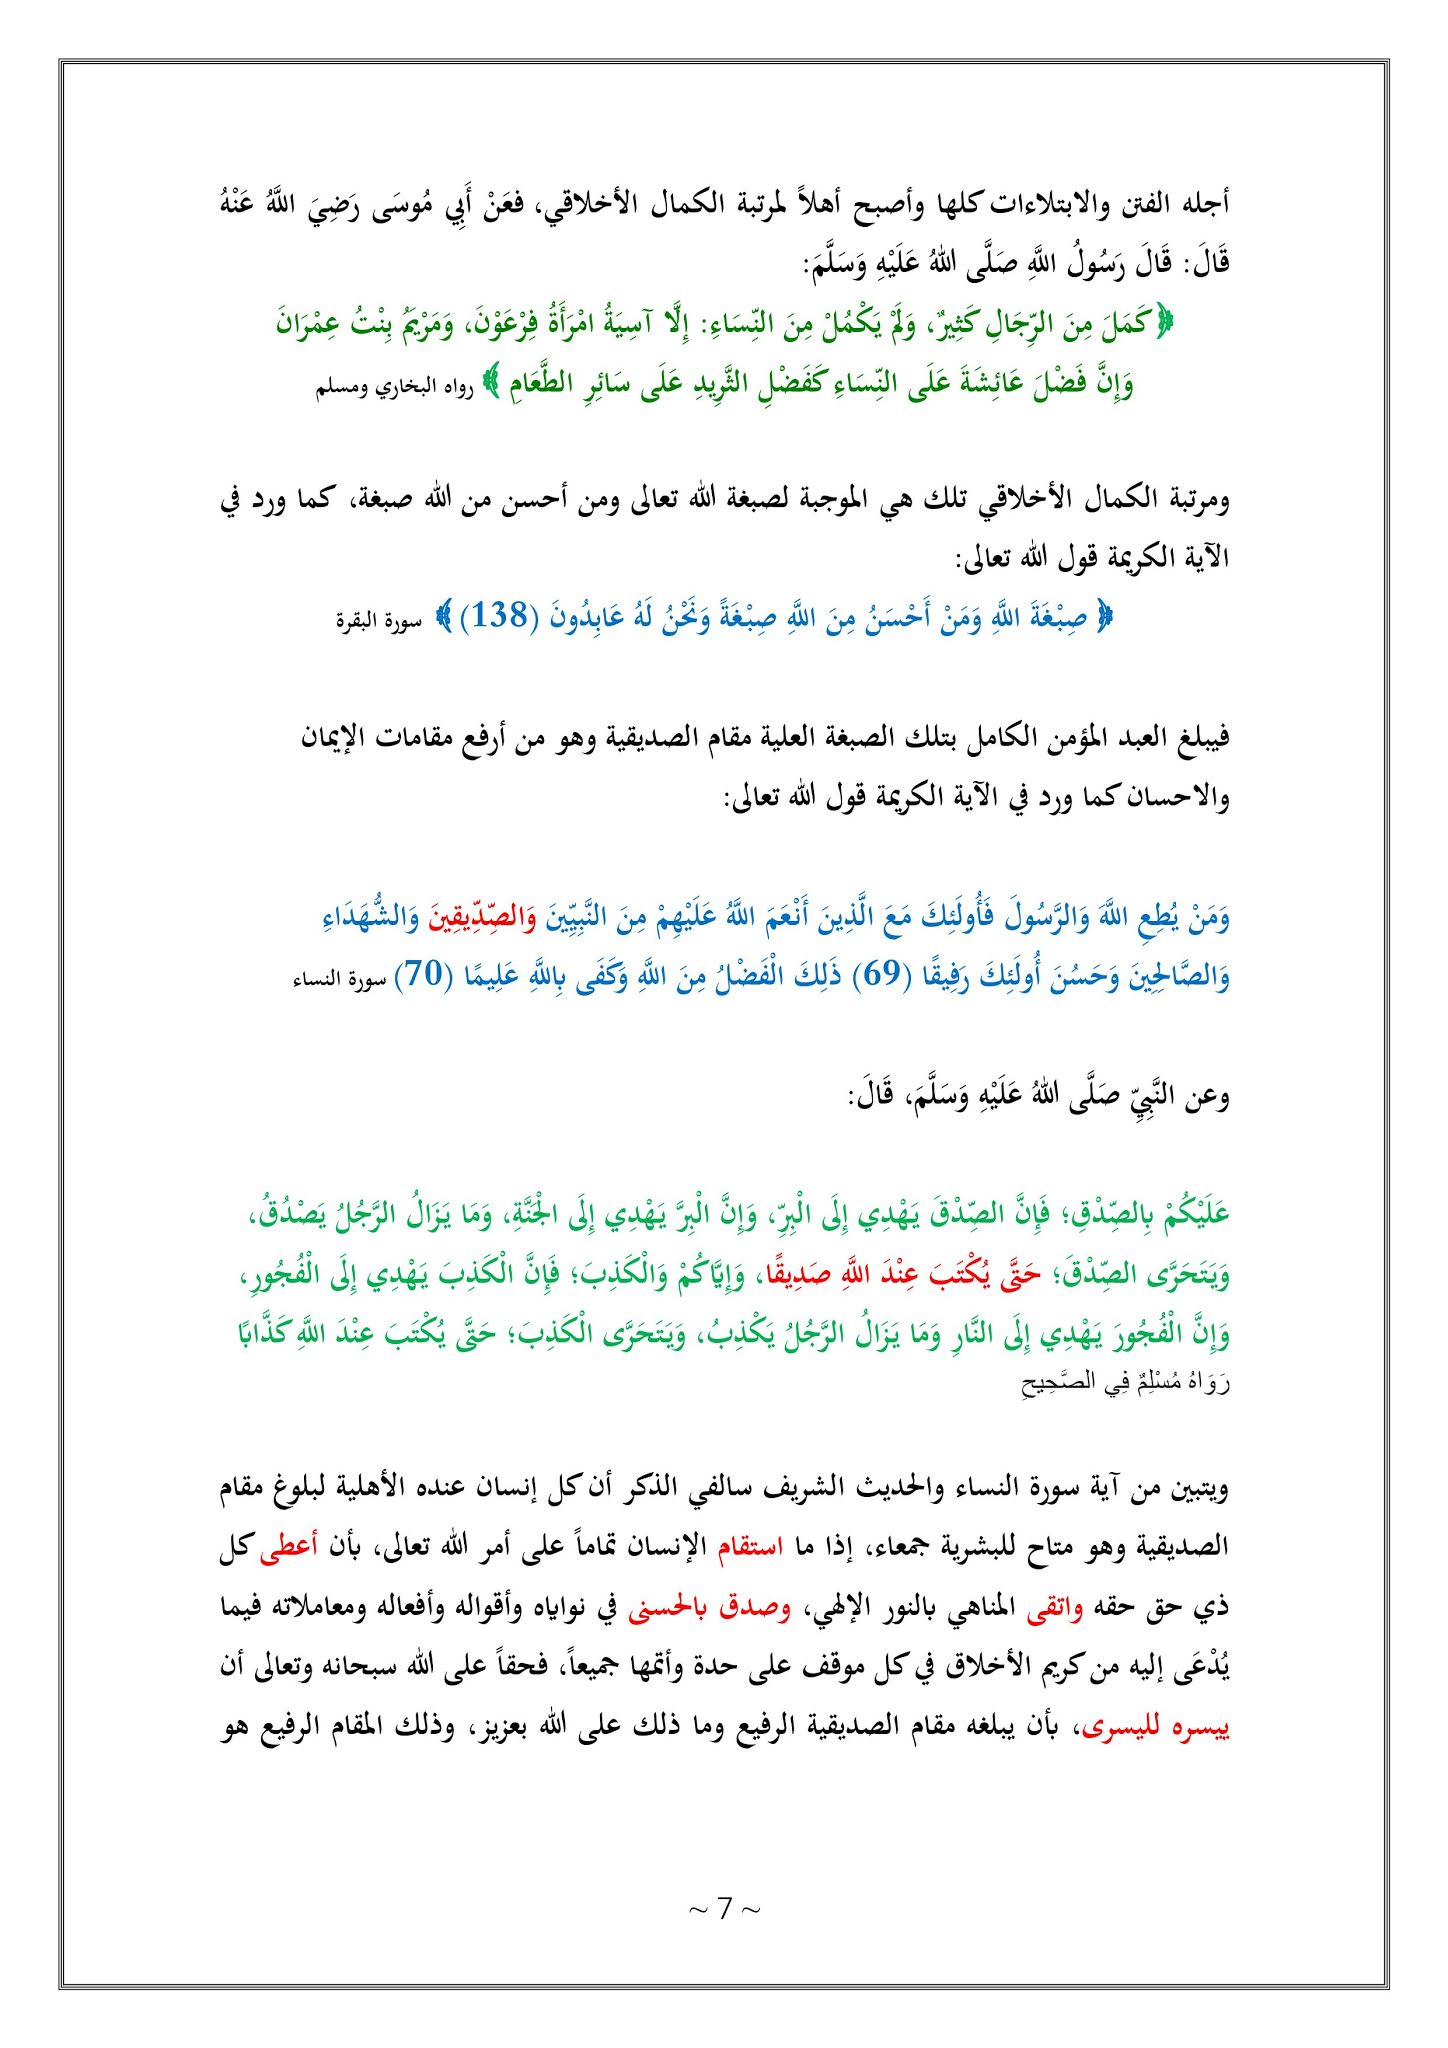 أجله الفتن والابتلاءات كلها وأصبح أهلاً لمرتبة الكمال الأخلاقي، فعَنْ أَبِي مُوسَى رَضِيَ اللَّهُ عَنْهُ
قَالَ: قَالَ رَسُولُ اللَّهِ صَلَّى اللهُ عَلَيْهِ وَسَلَّمَ:
﴿كَمَلَ مِنَ الرِّجَالِ كَثِيرٌ، وَلَمْ يَكْمُلْ مِنَ النِّسَاءِ: إِلَّا آسِيَةُ امْرَأَةُ فِرْعَوْنَ، وَمَرْيَمُ بِنْتُ عِمْرَانَ
وَإِنَّ فَضْلَ عَائِشَةَ عَلَى النِّسَاءِ كَفَضْلِ الثَّرِيدِ عَلَى سَائِرِ الطَّعَامِ ﴾ رواه البخاري ومسلم
ومرتبة الكمال الأخلاقي تلك هي الموجبة لصبغة الله تعالى ومن أحسن من الله صبغة، كما ورد في
الآية الكريمة قول الله تعالى:
﴿ صِبْغَةَ اللَّهِ وَمَنْ أَحْسَنُ مِنَ اللَّهِ صِبْغَةً وَنَحْنُ لَهُ عَابِدُونَ (138) ﴾ سورة البقرة
فيبلغ العبد المؤمن الكامل بتلك الصبغة العلية مقام الصديقية وهو من أرفع مقامات الإيمان
والاحسان كما ورد في الآية الكريمة قول الله تعالى:
وَمَنْ يُطِعِ اللَّهَ وَالرَّسُولَ فَأُولَئِكَ مَعَ الَّذِينَ أَنْعَمَ اللَّهُ عَلَيْهِمْ مِنَ النَّبِيِّينَ وَالصِّدِّيقِينَ وَالشُّهَدَاءِ
وَالصَّالِحِينَ وَحَسُنَ أُولَئِكَ رَفِيقًا (69) ذَلِكَ الْفَضْلُ مِنَ اللَّهِ وَكَفَى بِاللَّهِ عَلِيمًا (70) سورة النساء
وعن النَّبِيِّ صَلَّى اللهُ عَلَيْهِ وَسَلَّمَ، قَالَ:
عَلَيْكُمْ بِالصِّدْقِ؛ فَإِنَّ الصِّدْقَ يَهْدِي إِلَى الْبِرِّ، وَإِنَّ الْبِرَّ يَهْدِي إِلَى الْجَنَّةِ، وَمَا يَزَالُ الرَّجُلُ يَصْدُقُ،
وَيَتَحَرَّى الصِّدْقَ؛ حَتَّى يُكْتَبَ عِنْدَ اللَّهِ صَدِيقًا، وَإِيَّاكُمْ وَالْكَذِبَ؛ فَإِنَّ الْكَذِبَ يَهْدِي إِلَى الْفُجُورِ،
وَإِنَّ الْفُجُورَ يَهْدِي إِلَى النَّارِ وَمَا يَزَالُ الرَّجُلُ يَكْذِبُ، وَيَتَحَرَّى الْكَذِبَ؛ حَتَّى يُكْتَبَ عِنْدَ اللَّهِ كَذَّابًا
رَوَاهُ مُسْلِمٌ فِي الصَّحِيحِ
ويتبين من آية سورة النساء والحديث الشريف سالفي الذكر أن كل إنسان عنده الأهلية لبلوغ مقام
الصديقية وهو متاح للبشرية جمعاء، إذا ما استقام الإنسان تماماً على أمر الله تعالى، بأن أعطى كل
ذي حق حقه واتقى المناهي بالنور الإلهي، وصدق بالحسنى في نواياه وأقواله وأفعاله ومعاملاته فيما
يُدْعَى إليه من كريم الأخلاق في كل موقف على حدة وأتمها جميعاً، فحقاً على الله سبحانه وتعالى أن
ييسره لليسرى، بأن يبلغه مقام الصديقية الرفيع وما ذلك على الله بعزيز، وذلك المقام الرفيع هو
~ 7 ~